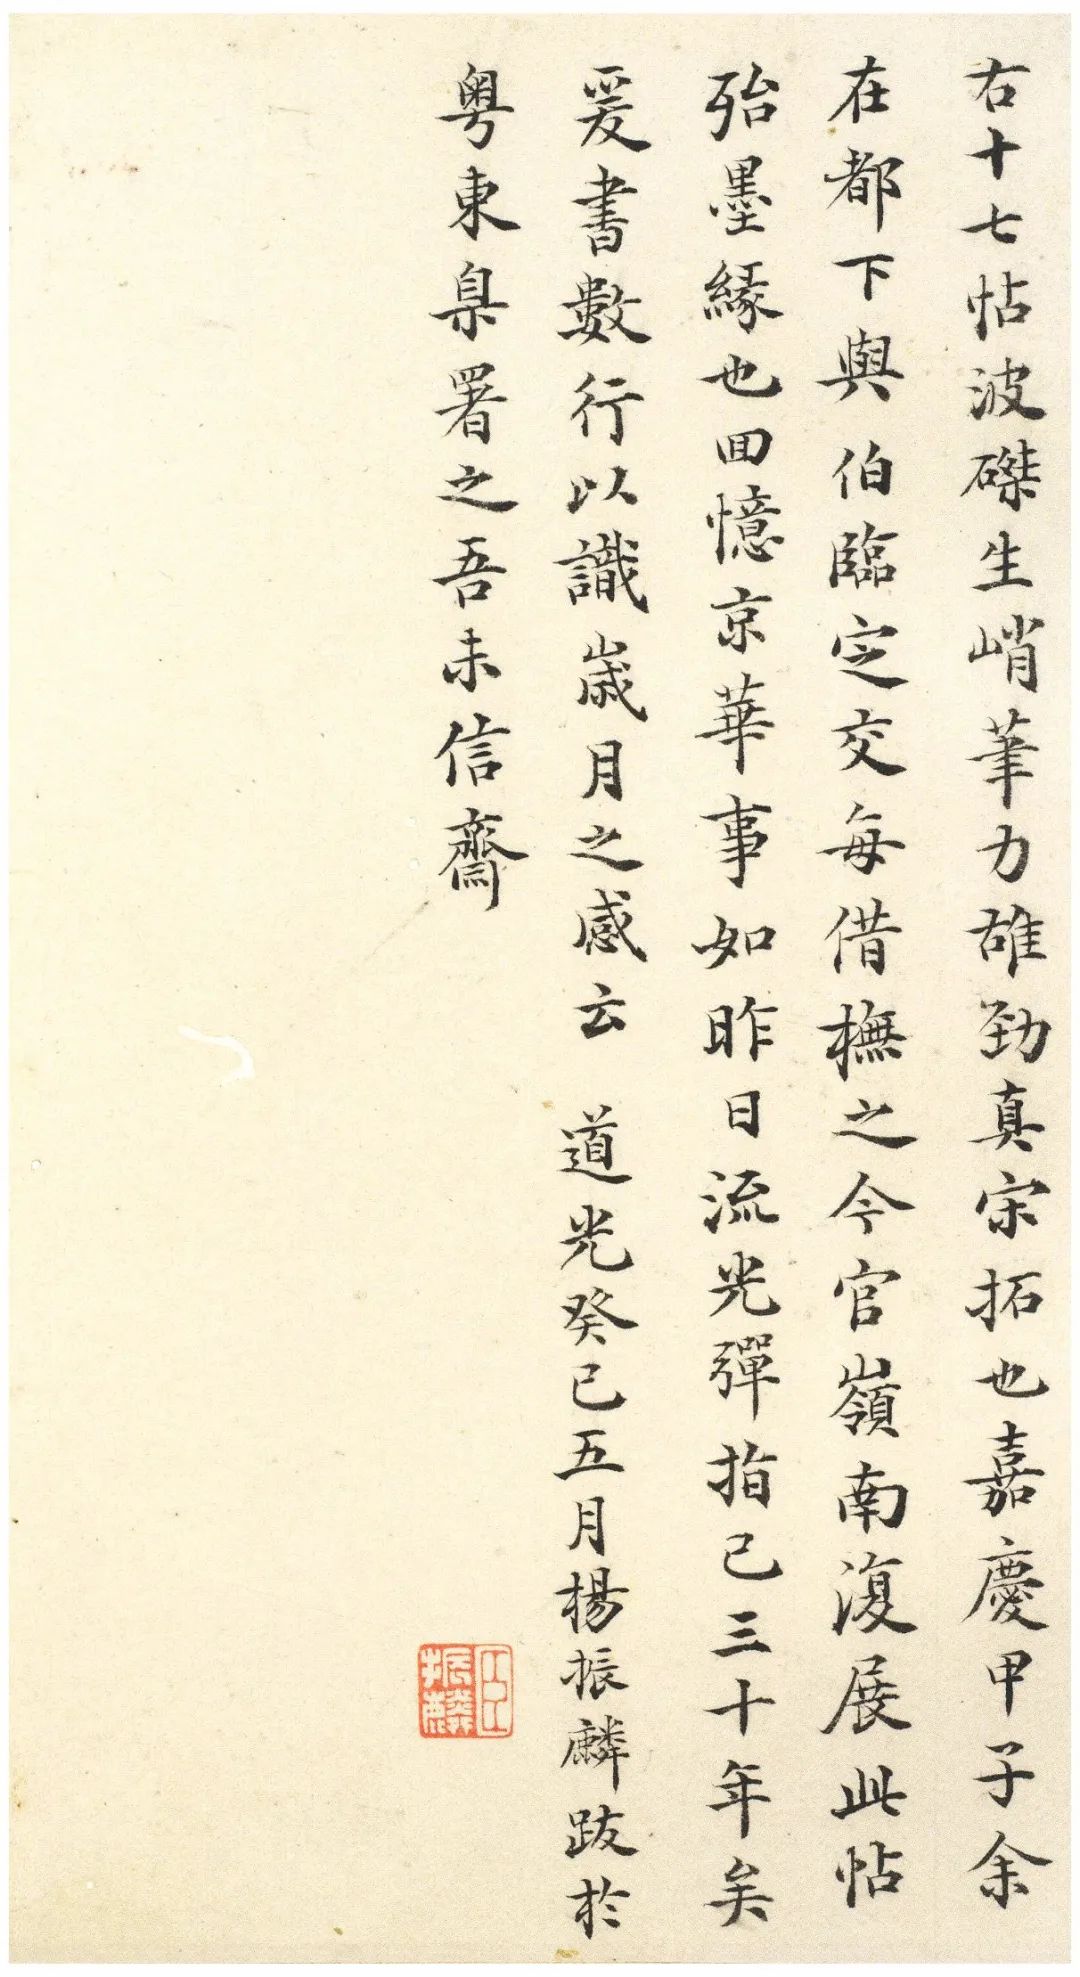 右十七帖波磔生峭筆力雄勁真宋拓也嘉慶甲子余
在都下與伯臨定交每借橅之今官嶺南復展此帖
殆墨緣也回憶京華事如昨日流光彈指已三十年矣
爰書數行以識歲月之感云 道光癸巳五月楊振麟跋於
粵東臬署之吾未信齋
臣振麟